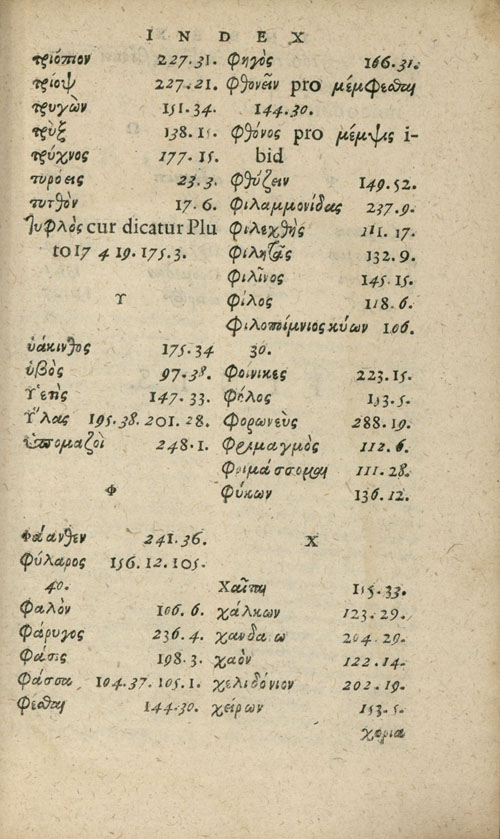 INDEX
τριόπιον 227.31.
τρίοψ 227.21.
τρυγὼν 151.34.
τρὺξ 138.15.
τρύχνος 177.15.
τυρόεις 23.3.
τυτθὸν 17.6.
Τυφλὸς cur dicatur Plu
to 17 4 19. 175.3.
Υ
ὑάκινθος 175.34
ὑβὸς 97.38.
Υ῾ετὶς 147.33.
Υ῞λας 195.38. 201.28.
ὑπομαζοὶ 248.1.
Φ
φάανθεν 241.36.
Φύλαρος 156.12. 105.
40.
Φαλὸν 106.6.
Φάρυγος 236.4.
Φάσις 198.3.
Φάσσα 104.37. 105.1.
Φέσθαι 144.30.
Φηγὸς 166.31.
Φθονεῖν pro μέμφεσθαι
144.30.
Φθόνος pro μέμψις i-
bid
Φθύζειν 149.52.
Φιλαμμονίδας 237.9.
Φιλεχθὴς 111.17.
Φιλητᾶς 132.9.
Φιλῖνος 145.15.
Φίλος 118.6.
Φιλοποίμνιος κύων 106.
30.
Φοίνικες 223.15.
Φόλος 153.5.
Φορωνεὺς 288.19.
Φριμαγμὸς 112.6.
Φριμάσσομαι 111.28.
Φύκων 136.12.
Χ
Χαῖται 115.33.
χάλκων 123.29.
χανδα ω 204.29.
χαὸν 122.14.
χελιδόνιον 202.19.
χείρων 153.5.
χορια